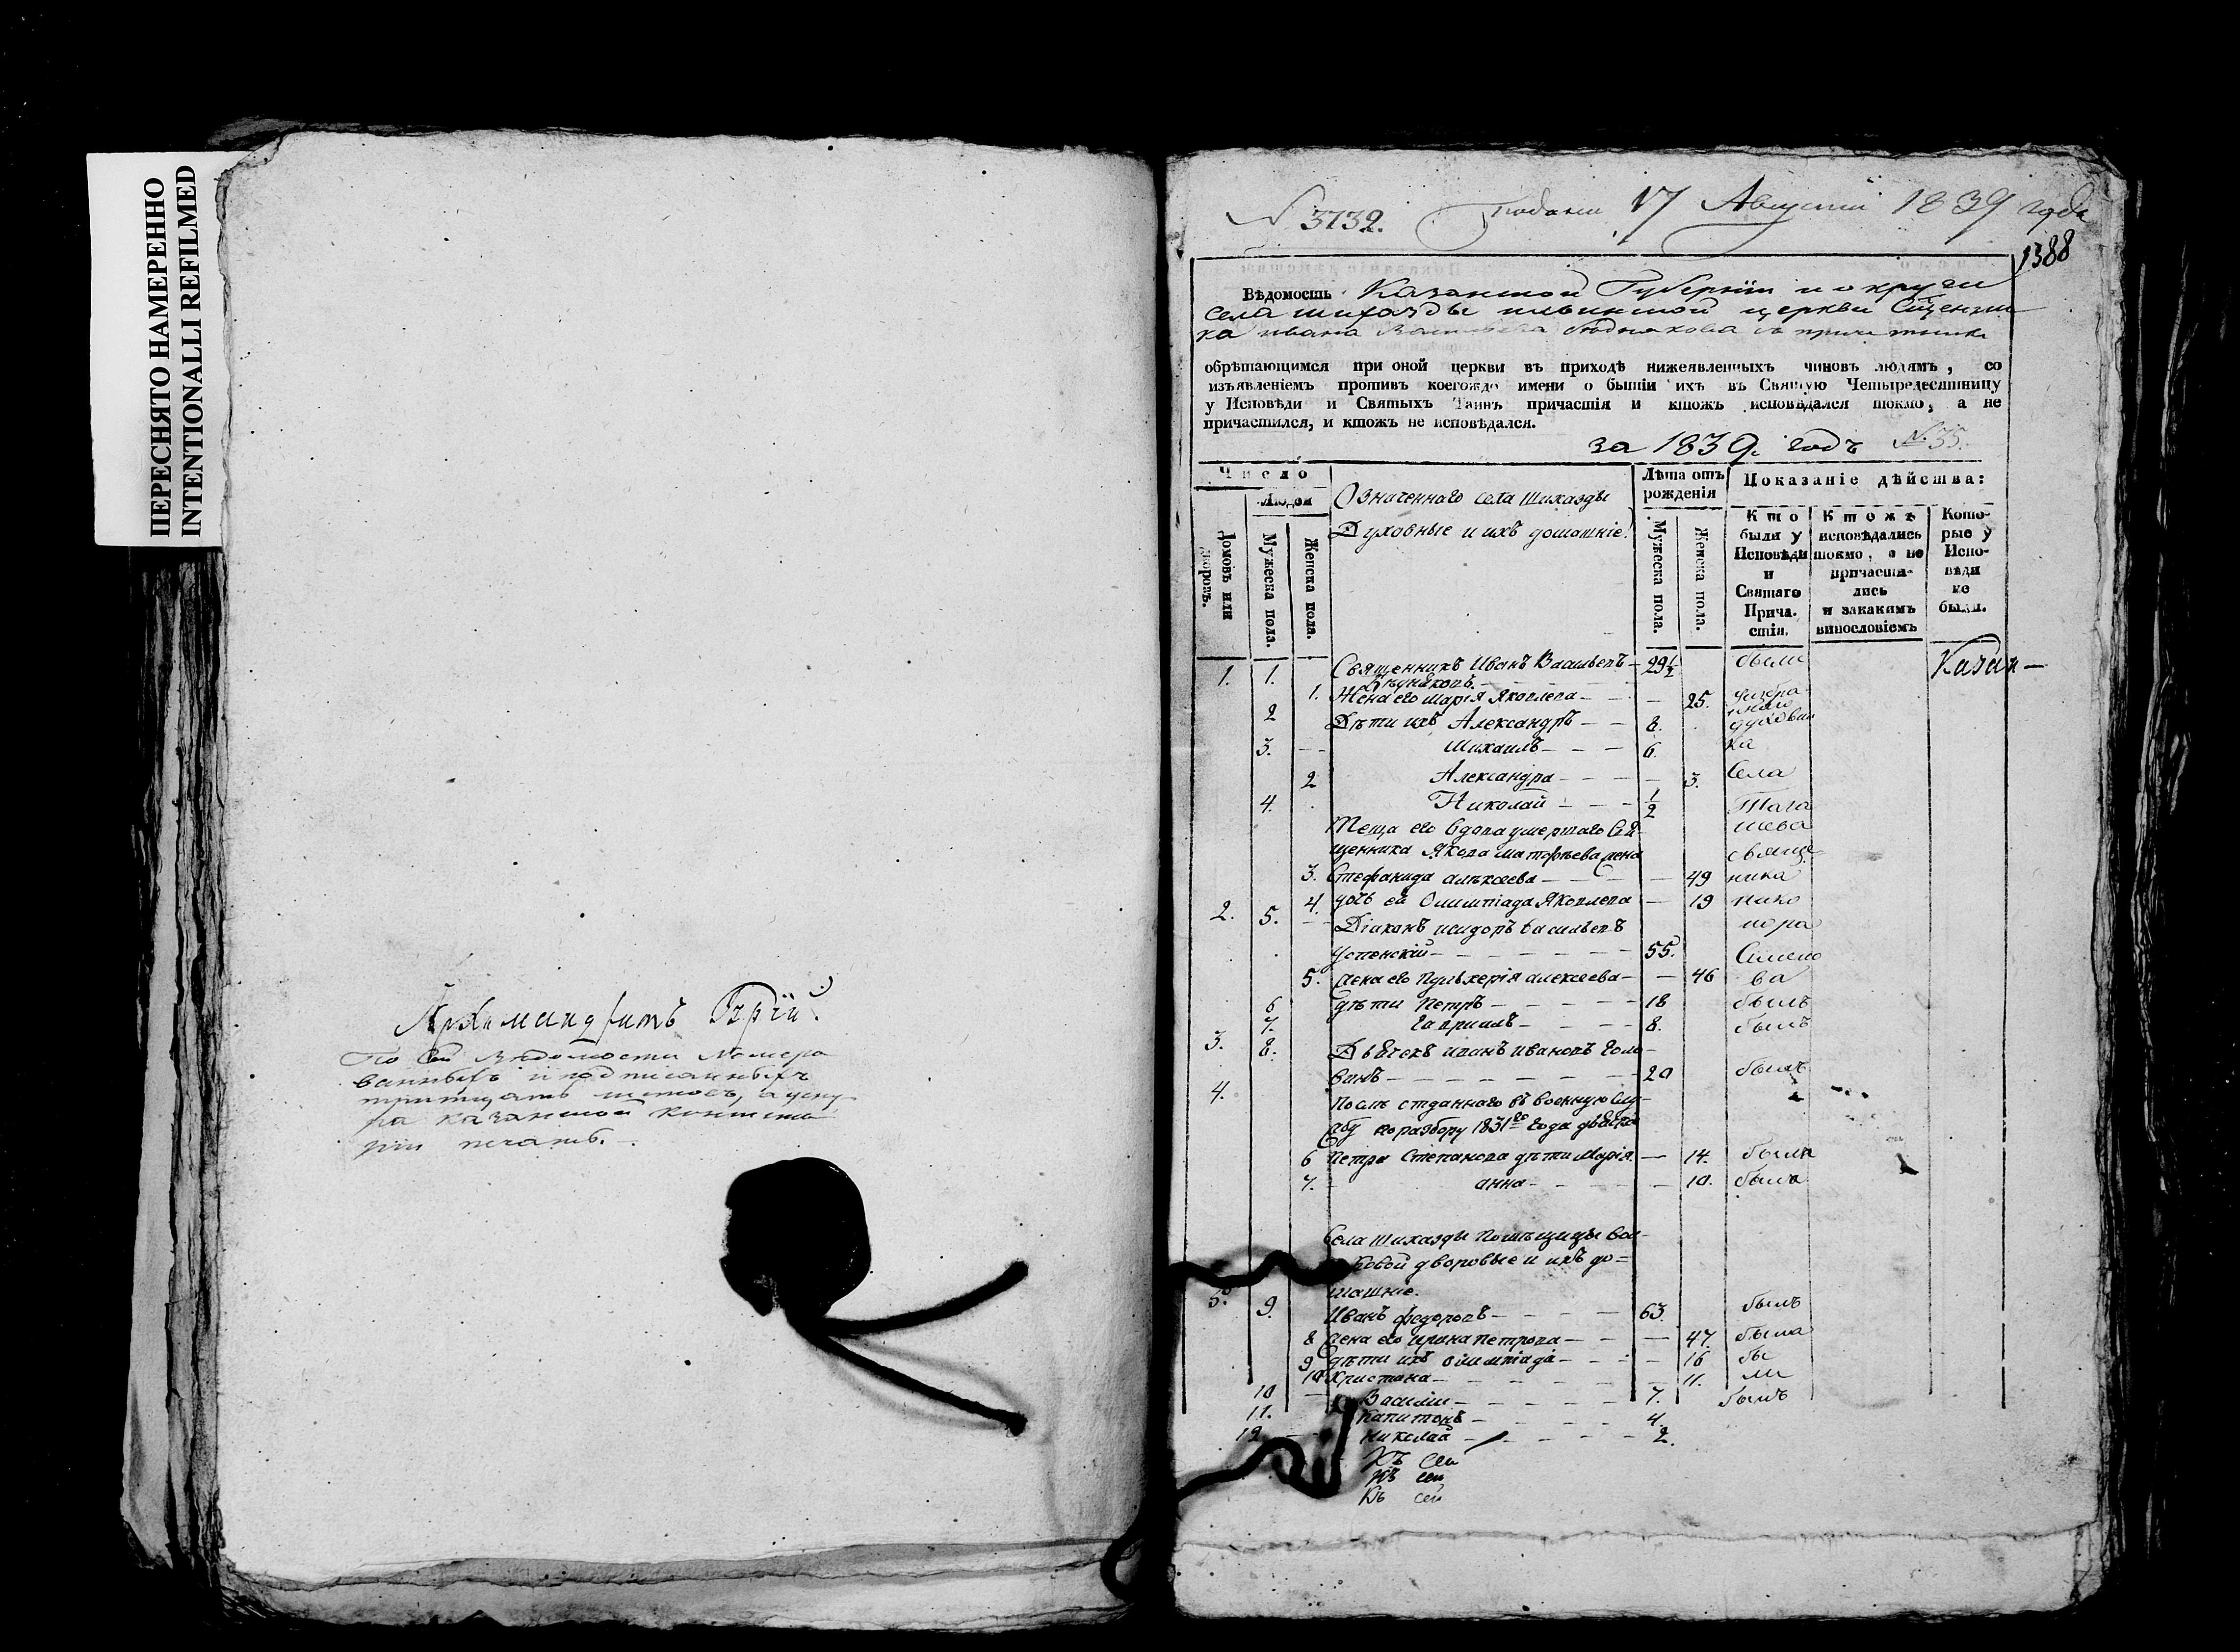 ПЕРЕСНЯТО НАМЕРЕННО
INTENTIONALLI REFILMED
Архимандритъ
По сей вѣдомости номеро
ванныхъ и подписанныхъ
тритцать листовъ, а у сну
ра казанской консисто
рiи печать.
N 3732. Подана 17 Августа 1839 года
1388
Вѣдомость Казанской Губернiи и округи
села Шихазды церкви Сщенни
ка Ивана Васильева съ причетники
обрѣтающимся при оной церкви въ приходѣ нижеявленныхъ чиновъ людямъ, со
изъявленiемъ противъ коегождо имени о бытiи ихъ въ Святую Четыредесятницу
у Исповѣди и Святыхъ Таинъ причастiя и ктожъ исповѣдался токмо, а не
причастился, и ктожъ не исповѣдался.
за 1839. годъ №. 35.
Число
Людей
Домовъ или дворовъ.
Мужеска пола.
Женска пола.
Означеннаго села Шихазды
Духовные и ихъ домашнiе.
Лѣта отъ рожденiя
Мужеска пола.
Женска пола.
Показанiе дѣйства:
Кто были у Исповѣди и Святаго Прича-стiя.
Ктожъ исповѣдались токмо, а не причасти-лись и закакимъ винословiемъ
Кото-рые у Испо-вѣди не были.
1. 1. Священникъ Иванъ Васильевъ - 29 1/2 были Казан-
1. Жена его Марiя Яковлева - - - 25.
2 Дѣти ихъ Александръ - - 8. духовни
3. - - Михаилъ - - - 6. ка
2 Александра - - - - 3. Села
4. Николай - - - 1/2 Тага
Теща его вдова умершаго Свя- шева
щенника Якова Матфѣева жена свяще
3. Стефанида Алексеева - - - - 49 ника
4. дочь ей Олимпiада Яковлева - 19 Нико
2. 5. - - Дiаконъ Исидоръ Васильевъ нора
Успенскiй - - - - - - - 55. Симео
5. жена его Пульхерiя Алексеева - - 46 ва
6 дѣти Петръ - - - - - 18 былъ
7. Гаврiилъ - - - - 8. былъ
3. 8. Дьячекъ Иванъ Ивановъ Голо-
винъ - - - - - - - 20 былъ
4. Послѣ отданнаго въ военную слу-
жбу по разбору 1831го года дьячка
6 Петра Степанова дѣти Марiя. - 14. была
7. - анна - - - - - 10. была
Села Шихазды Помѣщицы Вол-
ковой дворовые и ихъ до=
машнiе.
5. 9. Иванъ Федоровъ - - - - 63. былъ
8 жена его Ирина Петрова - - - 47. была
9 дѣти ихъ Олимпiада - - - - 16 бы
10 Христина - - - - - - 11. ли
10 - Василiй - - - - - 7. былъ
11. Капитонъ - - - - - 4.
12 - - Николай - - - - - 2.
Къ сей
Къ сей
Къ сей